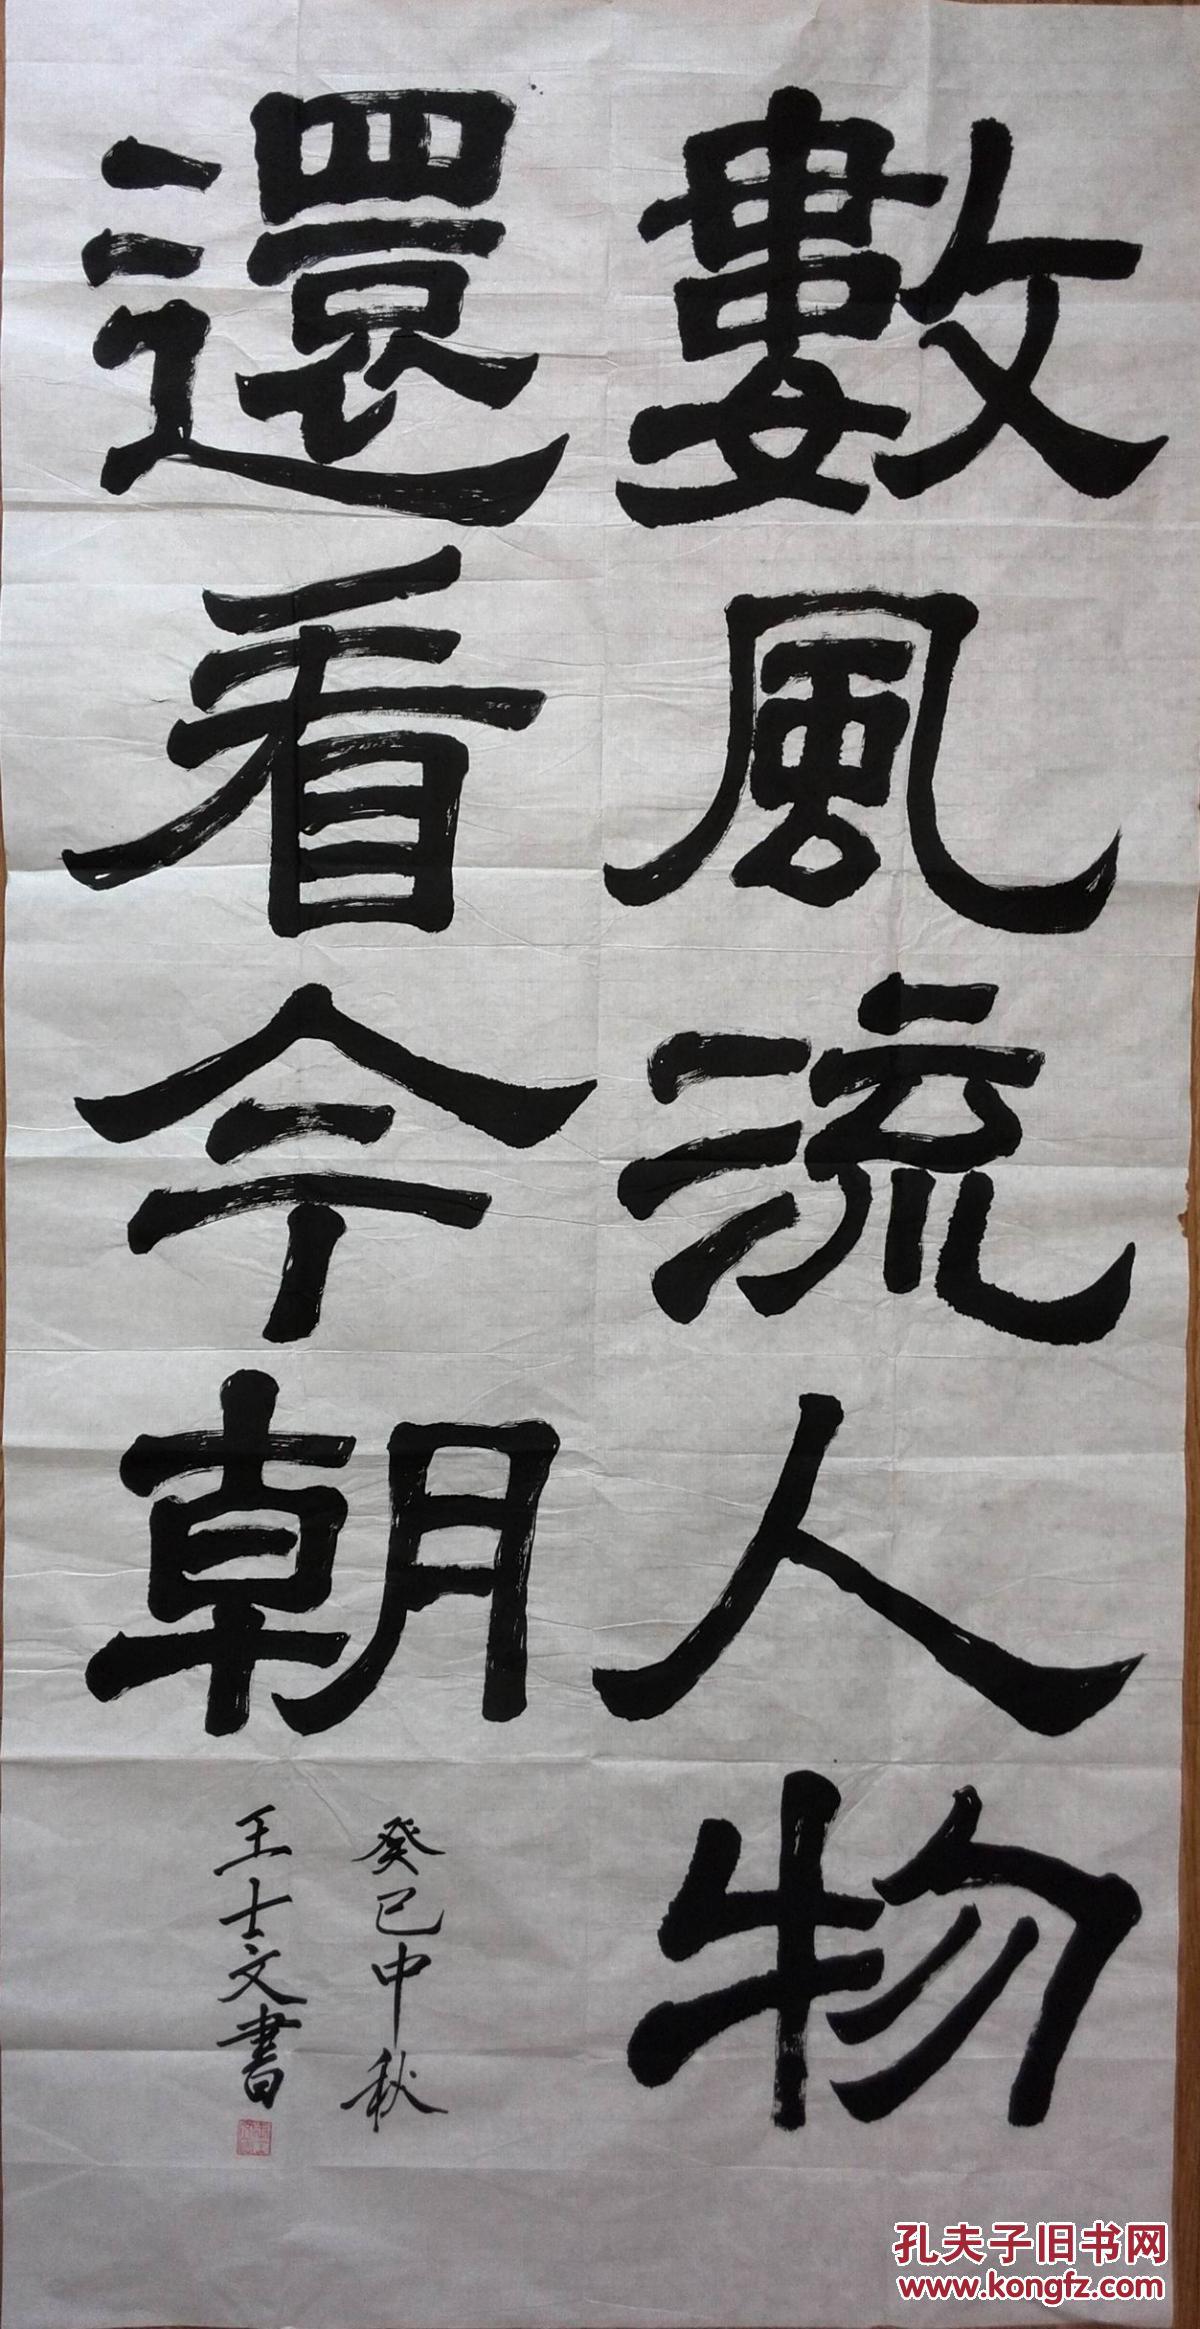 數風流人物
還看今朝
癸巳中秋
王士文書
孔夫子旧书网
www.kongfz.com